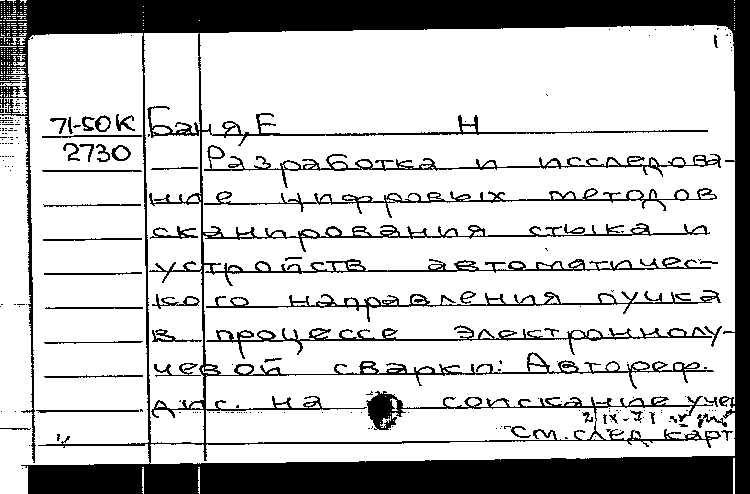 1
71-50К Баня, Е Н
2730 Разработка и исследова-
ние цифровых методов
сканирования стыка и
устройств автоматичес-
кого направления пучка
в процессе электроннолу-
чевой сварки: Автореф.
дис. на соискание учен
2 IX-71
См. след карт